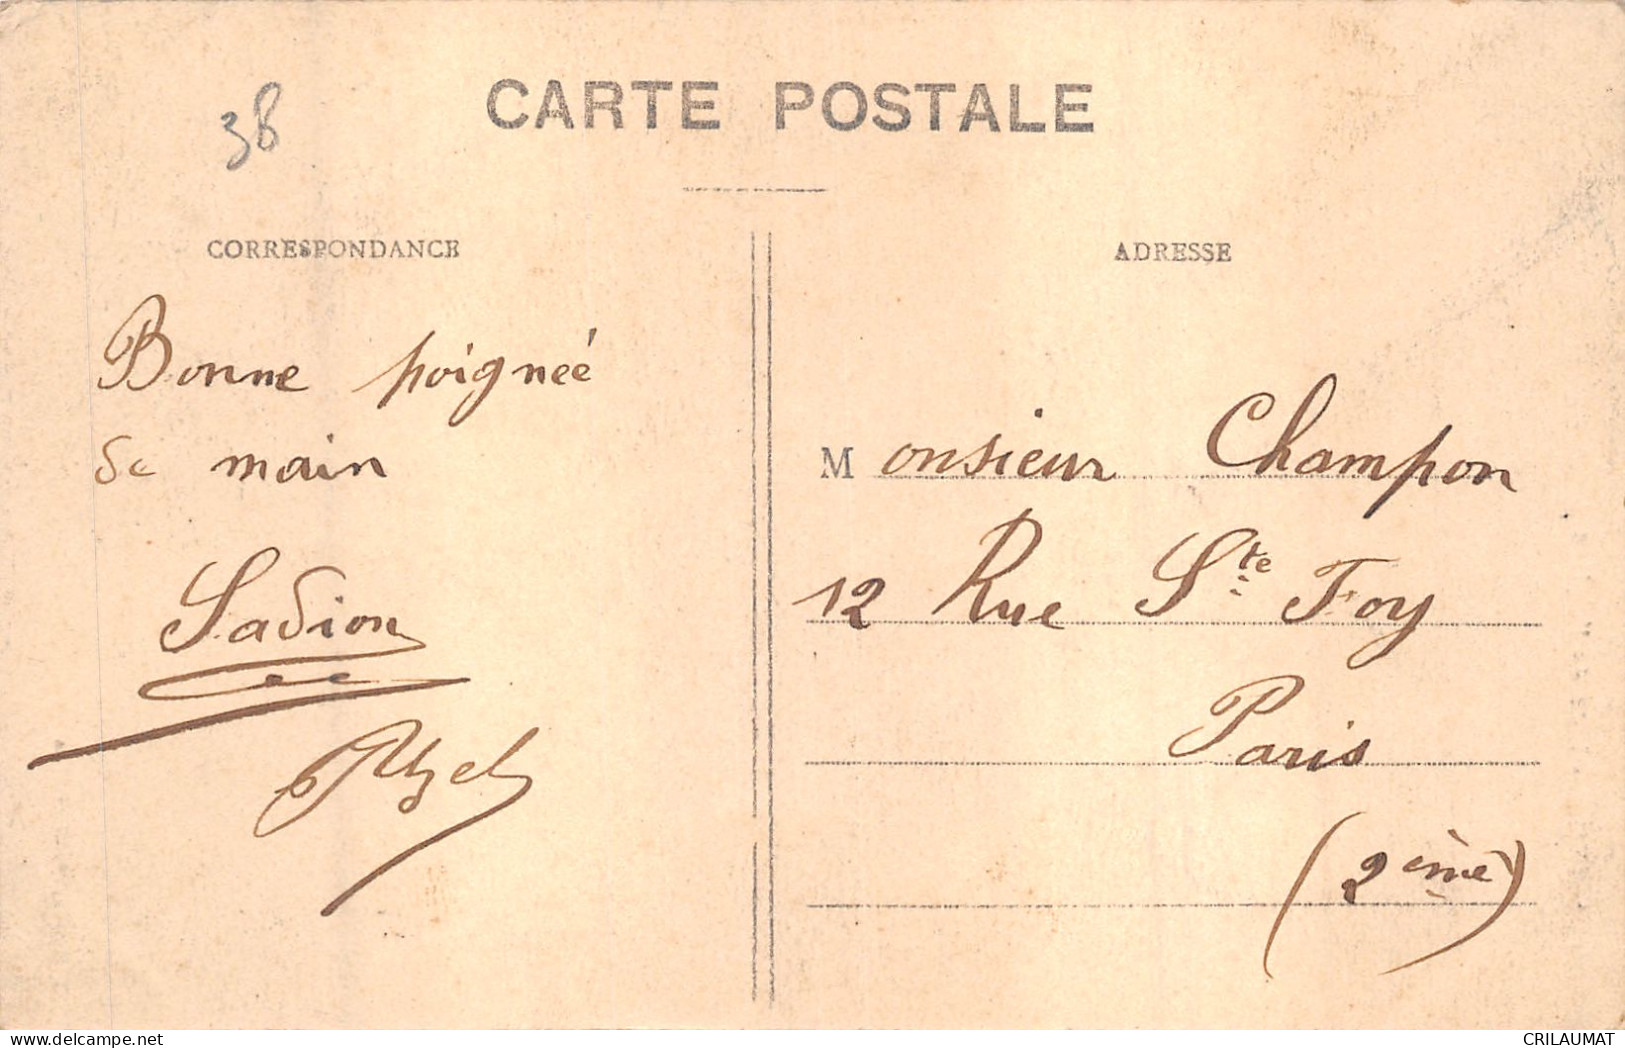 38
CARTE POSTALE
CORRESPONDANCE
Bonne poignéé
de main
Sadion
ADRESSE
Monsieur Champon
12 Rue Ste Foy
Paris
(2ème)
delcampe.net
CRILAUMAT